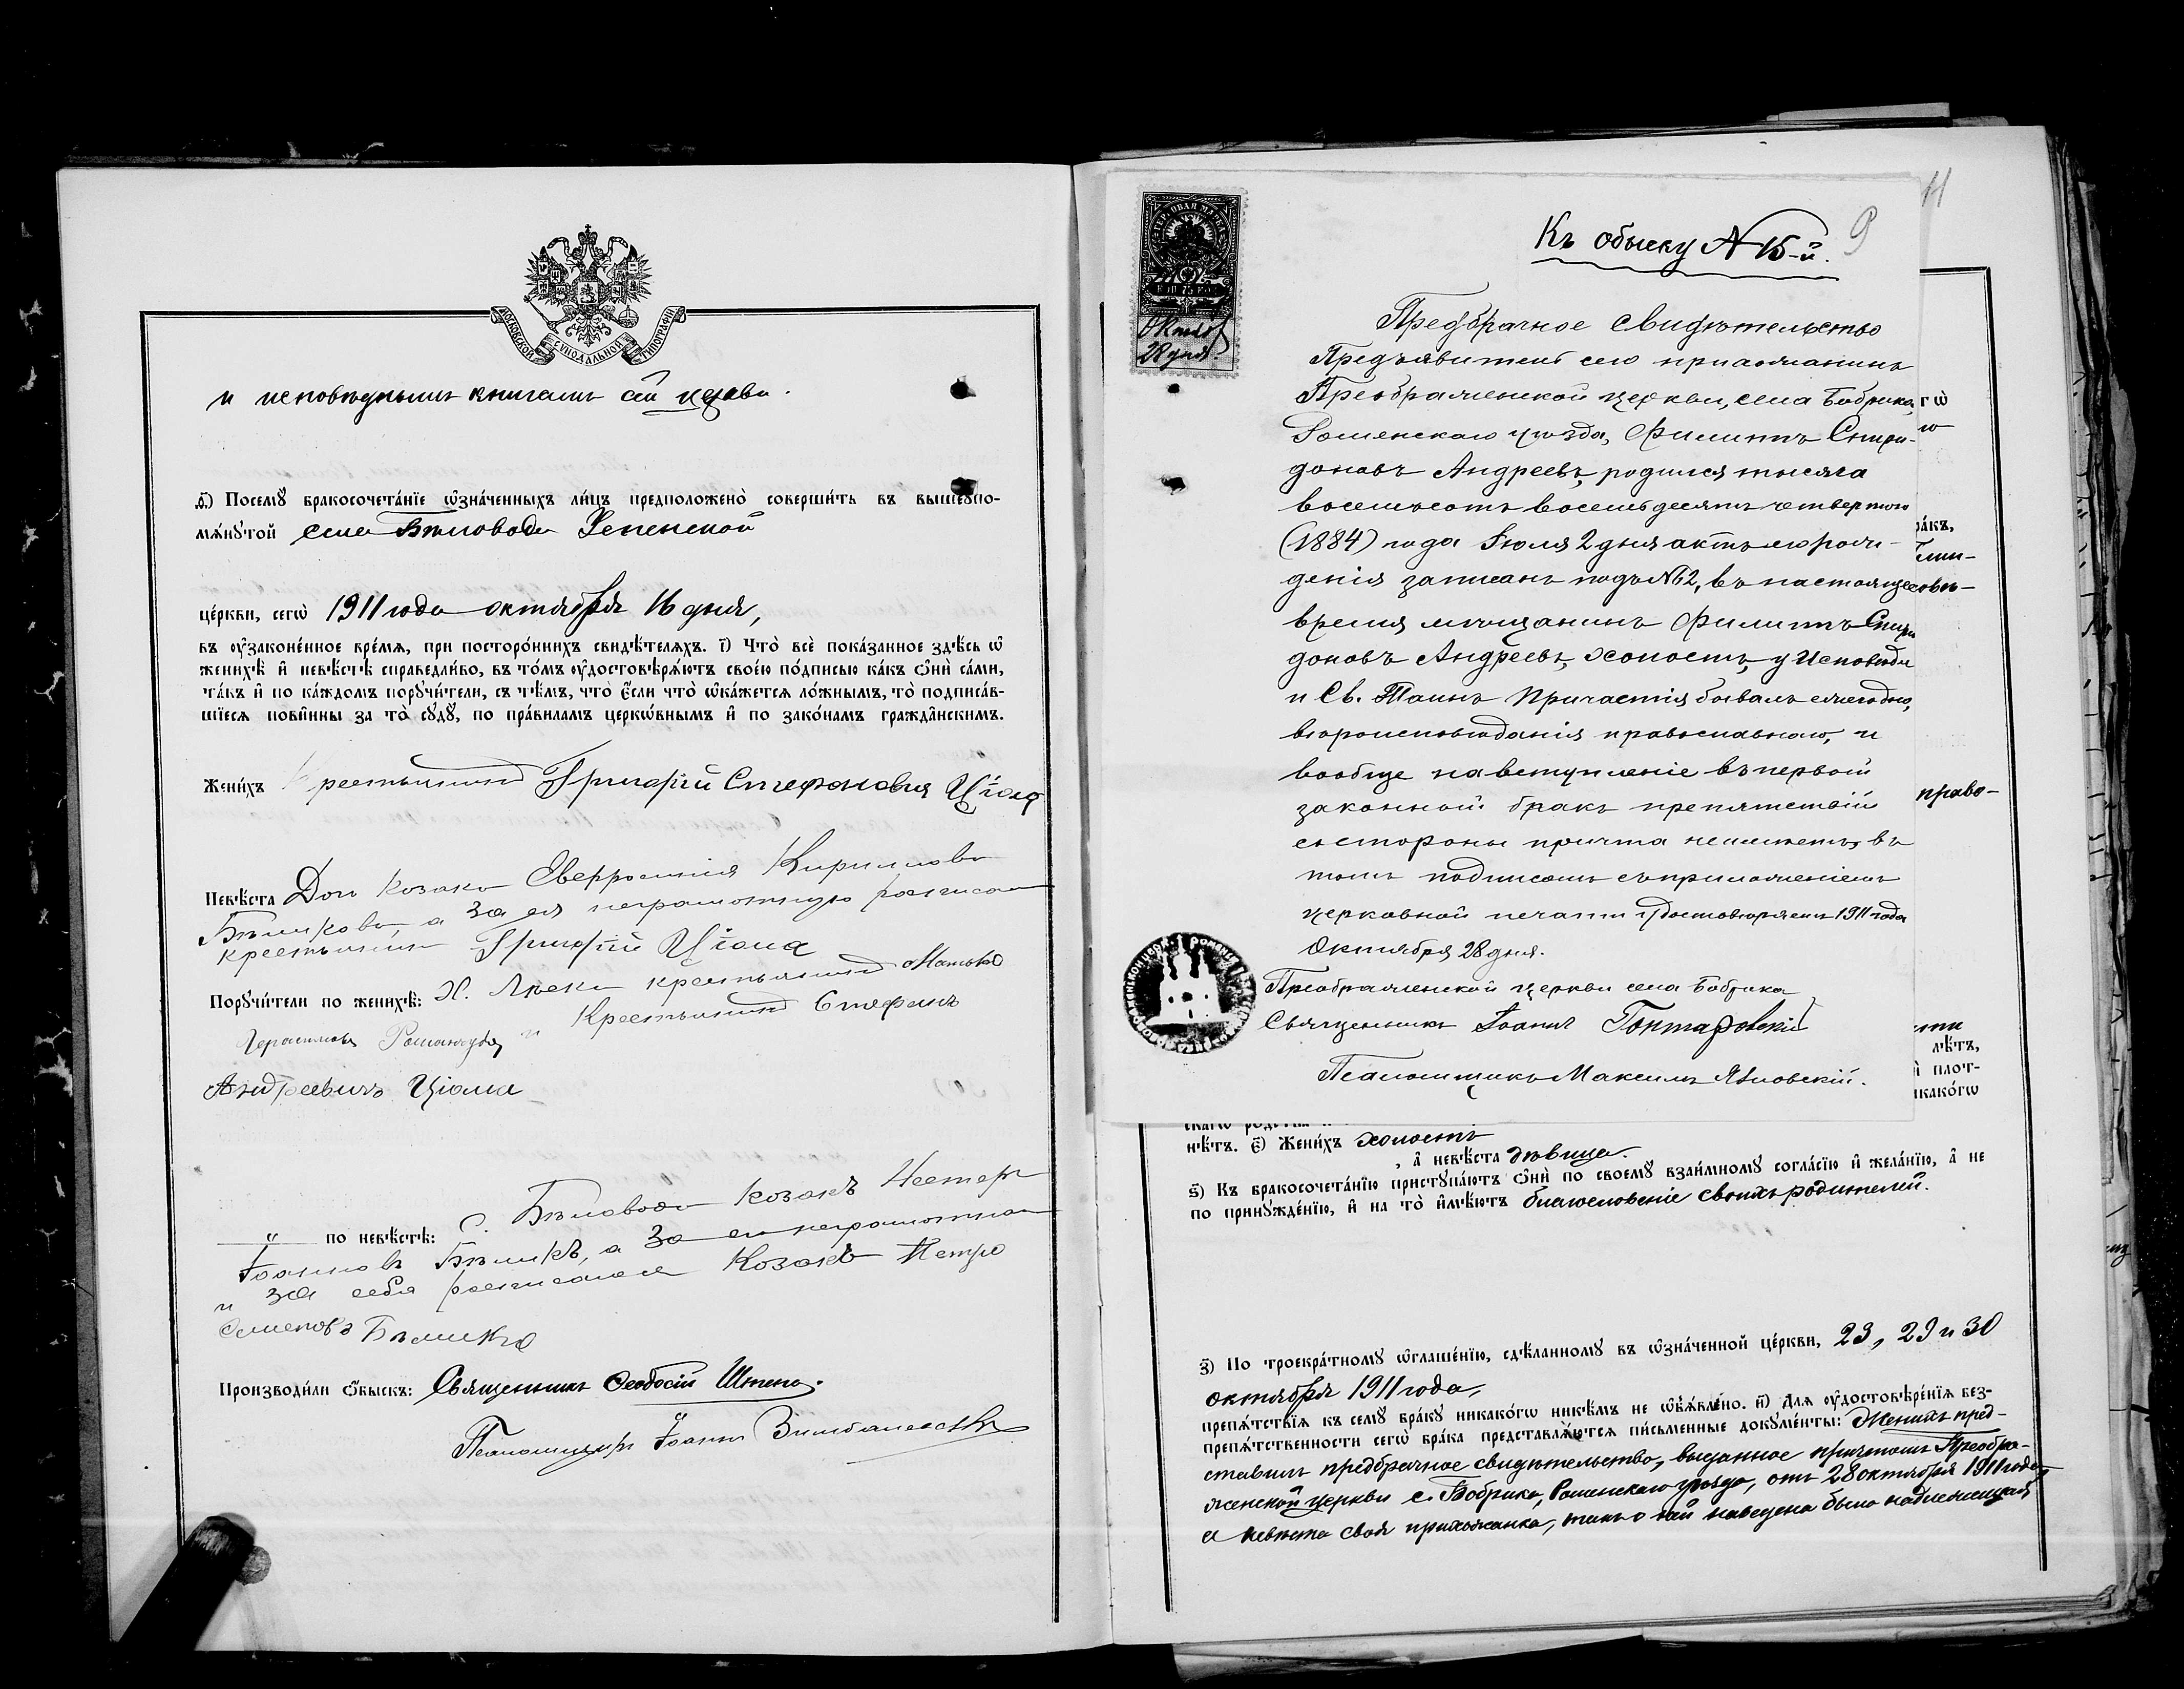 МОСКОВСКОЙ СѴНОДАЛЬНОЙ ТИПОГРАФІИ
и исповѣднымъ книгамъ сей церкви.
ѳ҃) Посемꙋ̀ бракосочета́нїе ѡ҆зна́ченныхъ ли́цъ предположено̀ соверши́ть въ вышеꙋпо-
мѧ́нꙋтой села Бѣловода Успенской
це́ркви, сегѡ̀ 1911 года октября 16 дня,
въ ᲂу҆зако́ненное вре́мѧ, при посторо́ннихъ свидѣ́телѧхъ. і҃) Что̀ всѐ пока́занное здѣ́сь ѡ҆
женихѣ̀ и҆ невѣ́стѣ справедли́во, въ то́мъ ᲂу҆достовѣрѧ́ютъ свое́ю по́дписью ка́къ ѻ҆нѝ са́ми,
та́къ и҆ по ка́ждомъ порꙋчи́тели, съ тѣ́мъ, что̀ є҆́сли что̀ ѡ҆ка́жетсѧ ло́жнымъ, то̀ подписа́в-
шїесѧ пови́нны за то̀ сꙋдꙋ̀, по пра́виламъ церкѡ́внымъ и҆ по зако́намъ гражда́нскимъ.
Жени́хъ Крестьянинъ Григорій Стефановъ Ціома
Невѣ́ста Доч. козака Евфросинія Кириллова
Бѣликова, а за ея неграмотную росписал
крестьянин Григорій Ціома
Порꙋчи́тели по женихѣ̀: Х. крестьянинъ
Герасимовъ и Крестьянинъ Стефанъ
Андреевичъ Ціома
〃 по невѣ́стѣ: С. Бѣловода козакъ Нестер
Іоанновъ Бѣликъ, а за его неграмотного
и за себя росписался Козакъ Петро
Семеновъ Бѣлик
Производи́ли ѻ҆́быскъ: Священникъ Ѳеодосій
Псаломщикъ Іоаннъ
11
Къ обыску № 15-й. 9
ГЕРБОВАЯ МАРКА
75 КОП
Октяб
28 дня.
Предбрачное свидѣтельство
Предъявитель сего прихожанинъ
Преображенской церкви, села Бобрика,
Роменскаго уѣзда, Филиппъ Спири-
доновъ Андреевъ, родился тысяча
восемьсотъ восемьдесятъ четвертого
(1884) года Іюля 2 дня актъ его рож-
денія записанъ подъ № 62, въ настоящее
время мѣщанинъ Филиппъ Спири
доновъ Андреевъ, холостъ, у Исповѣди
и Св. Таинъ Причастія бывалъ ежегодно,
вѣроисповѣданія православного, и
вообще на вступленіе въ первый
законный бракъ препятствій
со стороны причта не имѣетъ, въ
томъ подписомъ съ приложеніемъ
церковной печати удостовѣряемъ 1911 года
Октября 28 дня.
Преображенской церкви села Бобрика
Священникъ Іоаннъ Гонтаровскій
Псаломщикъ Максимъ Яновскій.
гѡ
ра́къ,
право-
лѣ́тъ,
плот-
икако́гѡ
нѣ́тъ. є҃) Жени́хъ холостъ
, а҆ невѣ́ста дѣвица.
ѕ҃) Къ бракосочета́нїю пристꙋпа́ютъ ѻ҆нѝ по своемꙋ̀ взаи́мномꙋ согла́сїю и҆ жела́нїю, а҆ не
по принꙋжде́нїю, и҆ на то̀ и҆мѣ́ютъ благословеніе своихъ родителей.
з҃) По троекра́тномꙋ ѡ҆глаше́нїю, сдѣ́ланномꙋ въ ѡ҆зна́ченной це́ркви, 23, 29 и 30
октября 1911 года,
препѧ́тствїѧ къ семꙋ̀ бра́кꙋ никако́гѡ никѣ́мъ не ѡ҆б̾ѧ́влено. и҃) Длѧ ᲂу҆достовѣре́нїѧ без-
препѧ́тственности сегѡ̀ бра́ка представлѧ́ютсѧ пи́сьменные докꙋме́нты: Женихъ пред-
ставилъ предбрачное свидѣтельство, выданное причтомъ Преобра-
женской церкви с. Бобрика, Роменскаго уѣзда, отъ 28 октября 1911 года,
а невѣста своя прихожанка, только о ней наведена была надлежащая